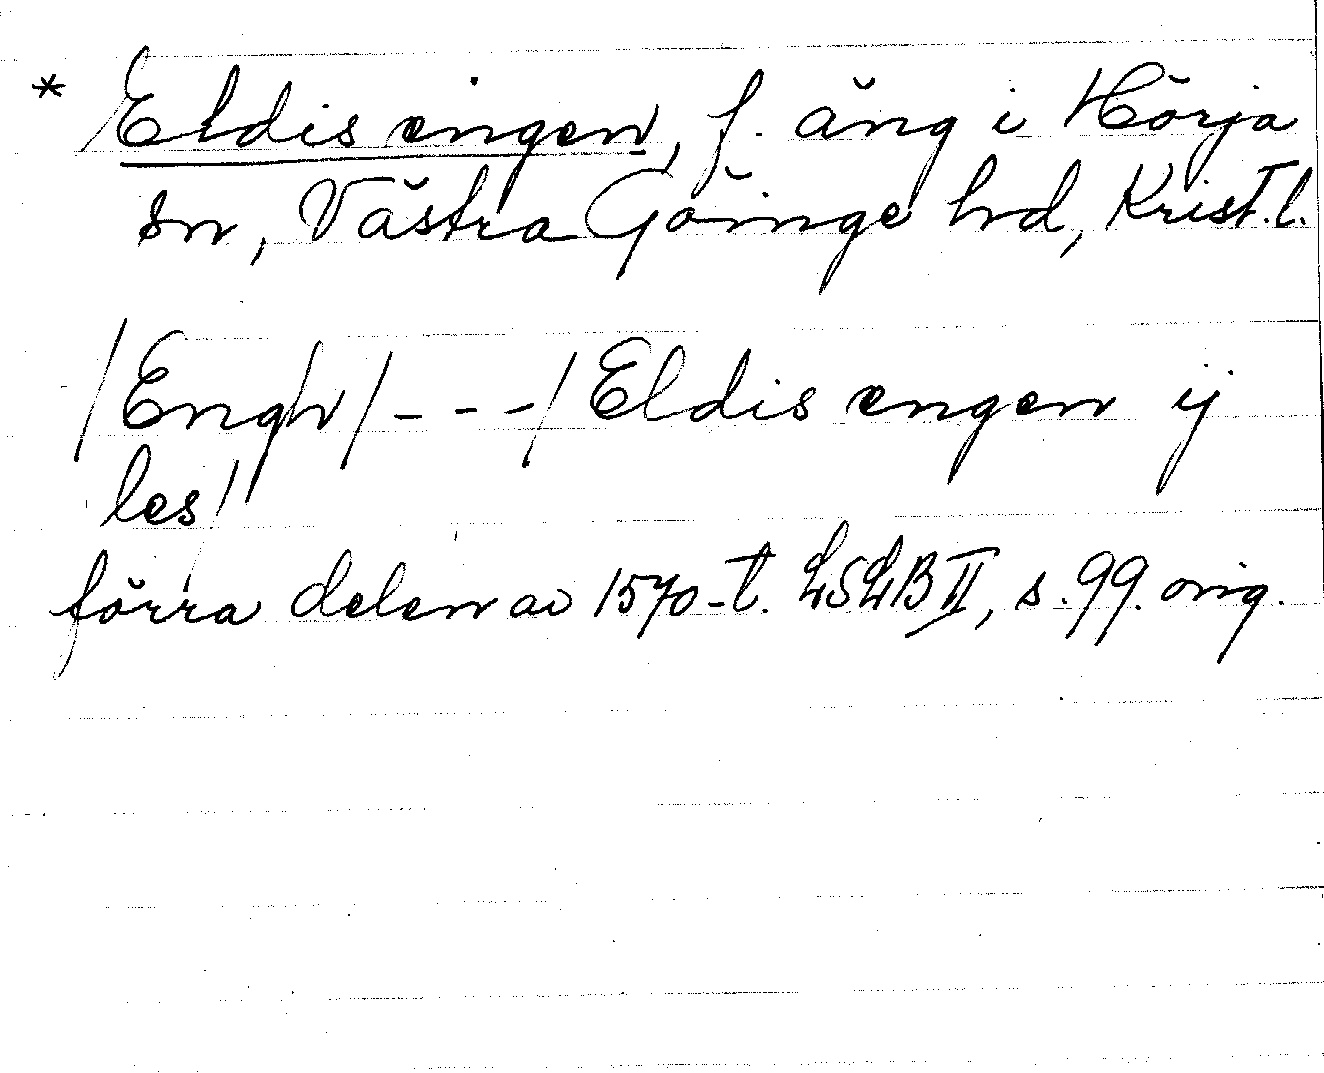 * Eldis engen, f. äng i Hörja
sn, Västra Göinge hd, Krist. l.
/Engh/ - - - / Eldis engen ij
les/"
förra delen av 1570-t. LSLB II, s. 99. orig.